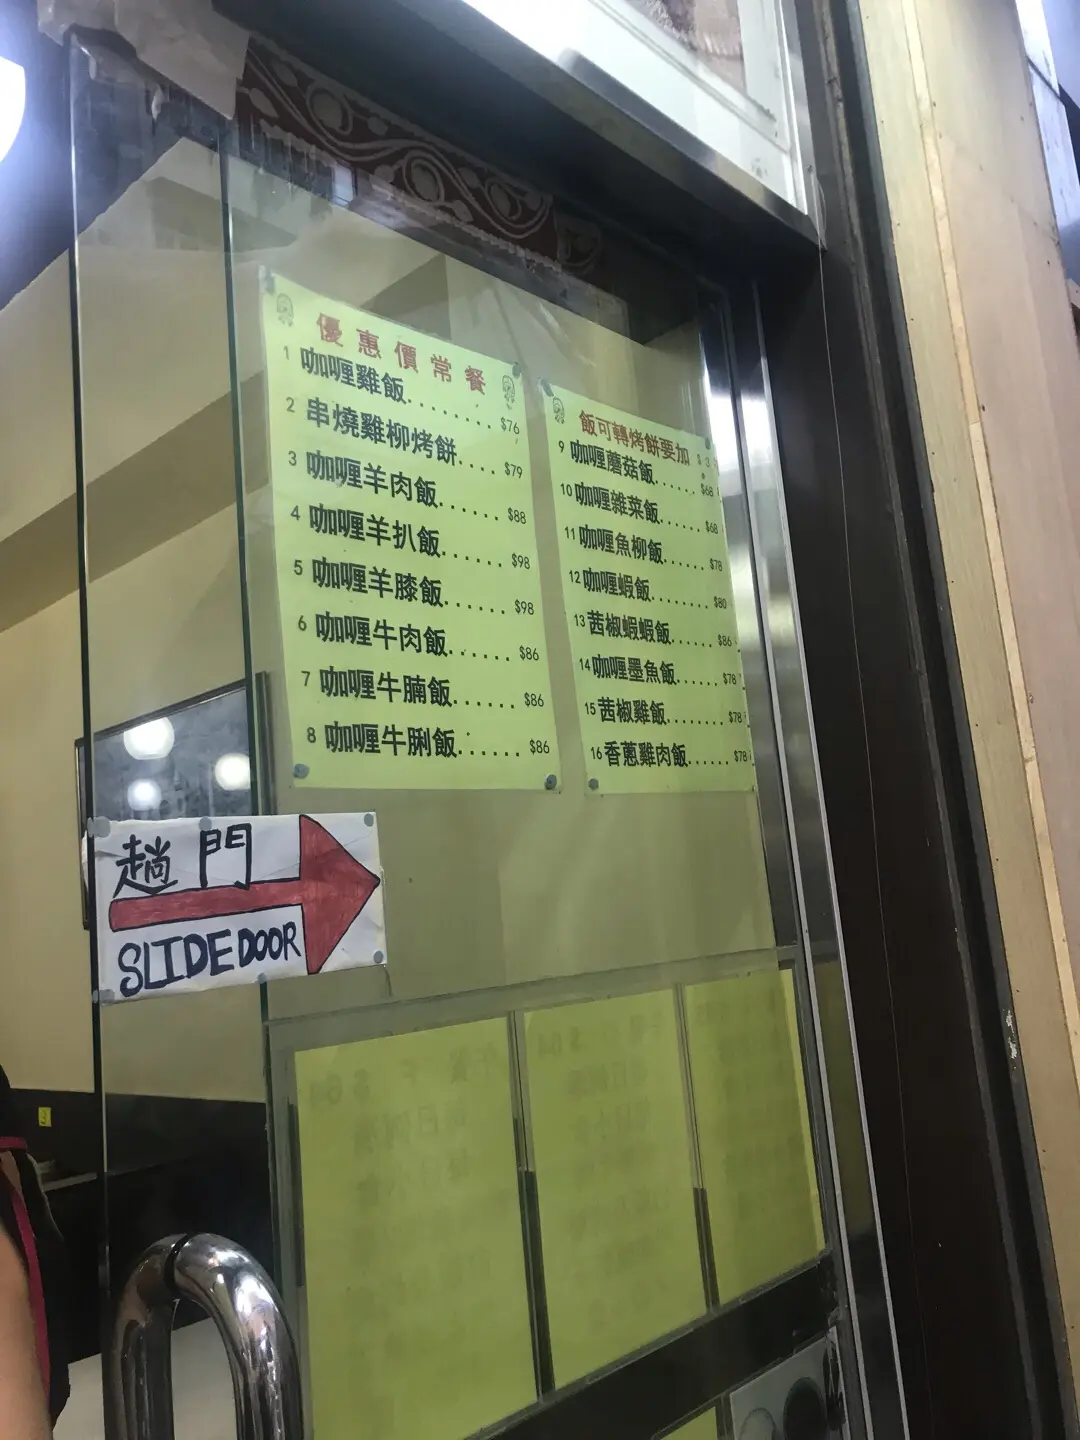 優惠價常餐
1 咖喱雞飯........ $76
2 串燒雞柳烤餅.... $79
3 咖喱羊肉飯...... $88
4 咖喱羊扒飯...... $98
5 咖喱羊膝飯...... $98
6 咖喱牛肉飯...... $86
7 咖喱牛腩飯...... $86
8 咖喱牛脷飯...... $86
飯可轉烤餅要加 $3
9 咖喱蘑菇飯...... $68
10 咖喱雜菜飯...... $68
11 咖喱魚柳飯...... $78
12 咖喱蝦飯........ $80
13 茜椒蝦蝦飯...... $86
14 咖喱墨魚飯...... $78
15 茜椒雞飯........ $78
16 香蔥雞肉飯...... $78
趟門
SLIDE DOOR